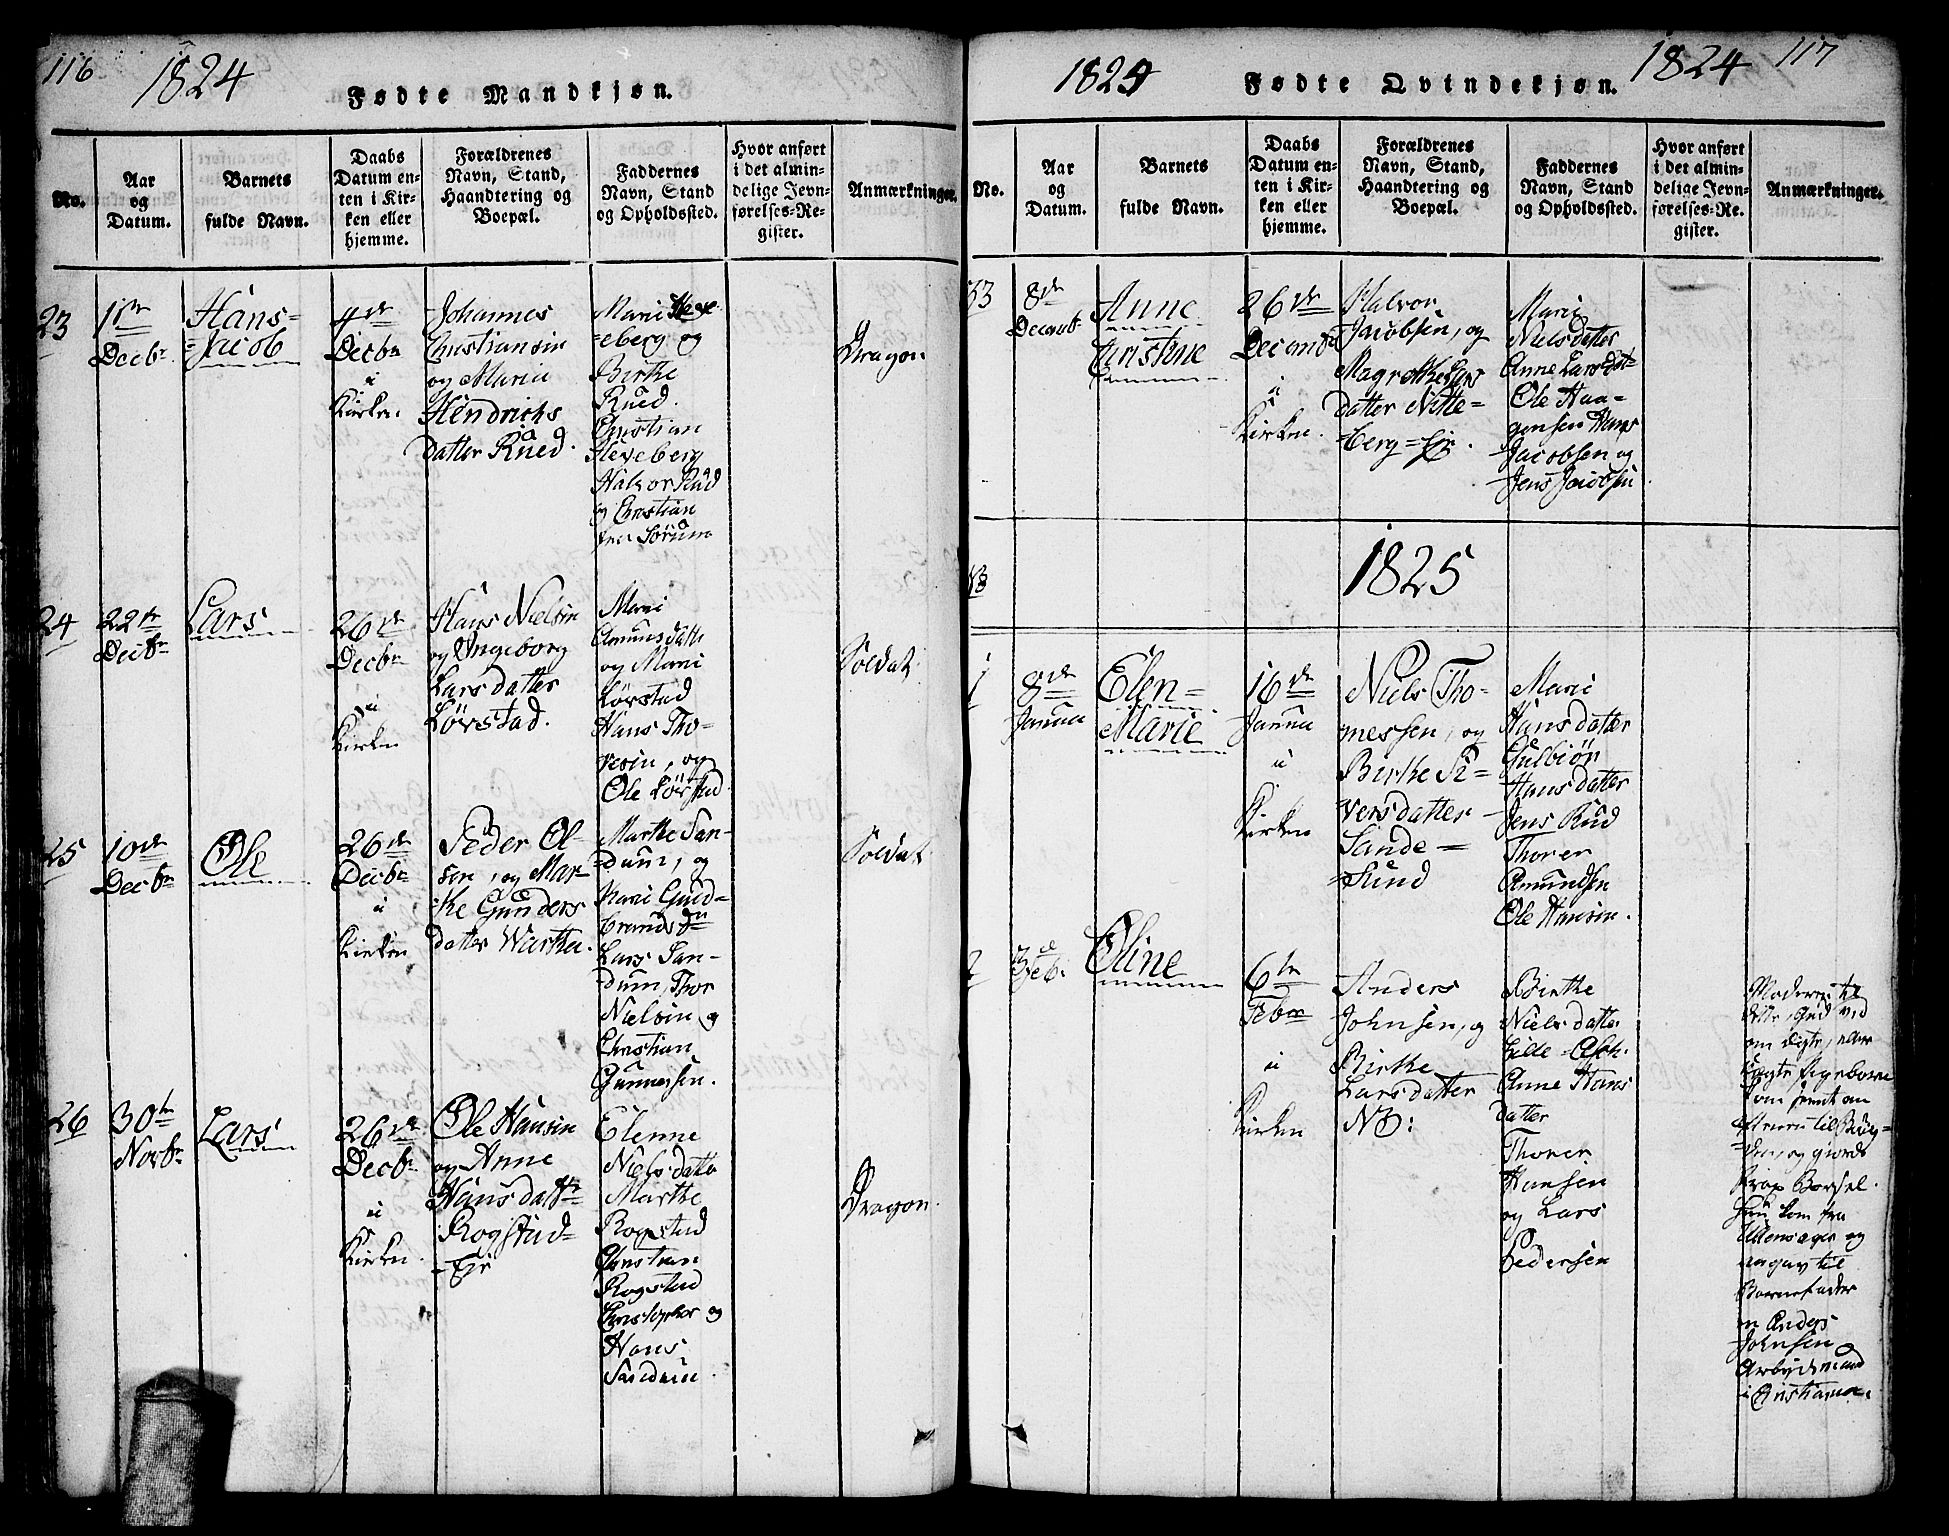 116
1824
Fødte Mandkjøn.
No.
Aar
og
Datum.
Barnets
fulde Navn.
Daabs
Datum en-
ten i Kir-
ken eller
hjemme.
Forældrenes
Navn, Stand,
Haandtering og
Boepæl.
Faddernes
Navn, Stand
og Opholdssted.
Hvor anført
i det almin-
delige Jevn-
førelses-Re-
gister.
Anmærkninger.
23
Decbr
Hans-
=Jacob
Decbr
i
Kirken.
Johannes
Christiansen
og Maria
Hendrichs
datter Rued.
Marie
=eberg og
Birthe
Rued.
Christian
Hexeberg
Halvor Rud
og Christian
Sørum
Dragon
24
22de
Decbr
Lars
26de
Decbr
i
Kirken
Hans Nielsen
og Ingeborg
Larsdatter
Lørstad.
Mari
Amunsdatter
og Mari
Lørstad
Hans Tho-
resen, og
Ole Lørstad.
Soldat.
25
10de
Decbr
Ole
26de
Decbr
i
Kirken
Peder Ol-
sen, og Mar-
the Gunders
datter Wartha.
Marthe San-
=dum, og
Mari Guld-
brands dr
Lars San-
dum, Thor
Nielsen og
Christian
Gunnersen.
Soldat
26
30te
Novbr
Lars
26de
Decbr
i
Kirken.
Ole Hansen
og Anne
Hansdatter
Rogstad=
=Eje
Elenne
Nielsdatter
Marthe
Rogstad
Christian
Rogstad
Christopher og
Hans
Sandum.
Dragon.
1824
1824
117
Fødte Qvindekjøn.
No.
Aar
og
Datum.
Barnets
fulde Navn.
Daabs
Datum en-
ten i Kir-
ken eller
hjemme.
Forældrenes
Navn, Stand,
Haandtering og
Boepæl.
Faddernes
Navn, Stand
og Opholdssted.
Hvor anført
i det almin-
delige Jevn-
førelses-Re-
gister.
Anmærkninger.
33
8de
Decemb.
Anne
Christine
26de
Decembr
i
Kirken.
Halvor
Jacobsen, og
Magrethe Lars
datter Nitte=
=berg=Eje.
Marie
Nielsdatter
Anne Larsdat-
Ole Haa=
gensen Hans
Jacobsen og
Jens Jacobsen.
1825
1
8de
Januar
Elen=
Marie
16de
Januar
i
Kirken
Niels Tho-
messen, og
Birthe Si=
versdatter
Sande=
=Sund
Marie
Hansdatter
Gulbiør
Hansdatter
Jens Rud
Thorer
Amundsen
Ole Hansen.
2
Feb.
Oline
6te
Febr
i
Kirken
Anders
Johnsen, og
Birthe
Larsdatter
NB:
Birthe
Niels datter
Anne Hans
datter
Thorer
Hansen
og Lars
Pedersen
Moderen til
dette, Gud ved
om
som
til Byg=
=den, og giorde
Barsel.
som fra
Ullensager og
angav til
Barnefader
en Anders
Johnsen
Arbejdsmand
i Christiania.